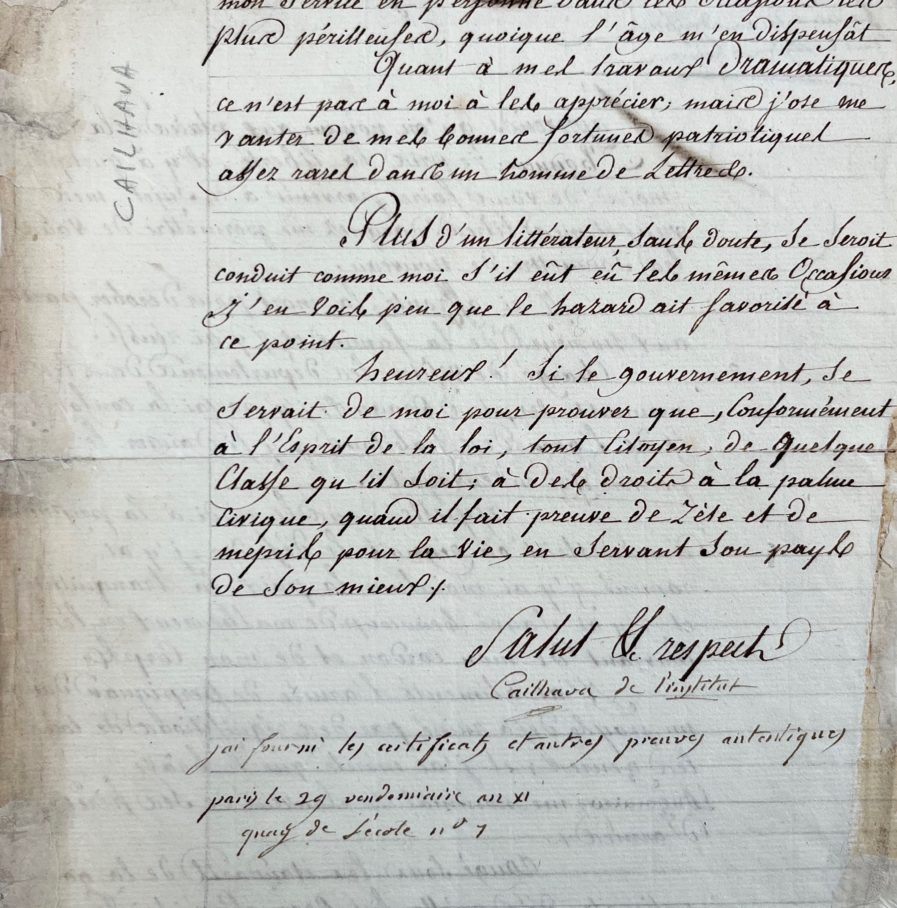 mon service en personne dans les occasions les
plus périlleuses, quoique l'âge m'en dispensât
Quant à mes travaux Dramatiques,
ce n'est pas à moi à les apprécier, mais j'ose me
vanter de mes bonnes fortunes patriotiques
assez rares dans un homme de Lettres.
Plus d'un littérateur, sans doute, se seroit
conduit comme moi s'il eût eû les mêmes Occasions
J'en vois peu que le hazard ait favorisé à
ce point.
heureux! Si le gouvernement, se
servait de moi pour prouver que, Conformément
à l'Esprit de la loi, tout Citoyen, de quelque
Classe qu'il soit, à des droits à la palme
Civique, quand il fait preuve de Zèle et de
mepris pour la Vie, en servant son pays
de son mieux.
Salut & respect
Cailhava de l'institut
jai fourni les certificats et autres preuves autentiques
paris le 29 vendemiaire an XI
quay de l'école n° 7
CAILHAVA